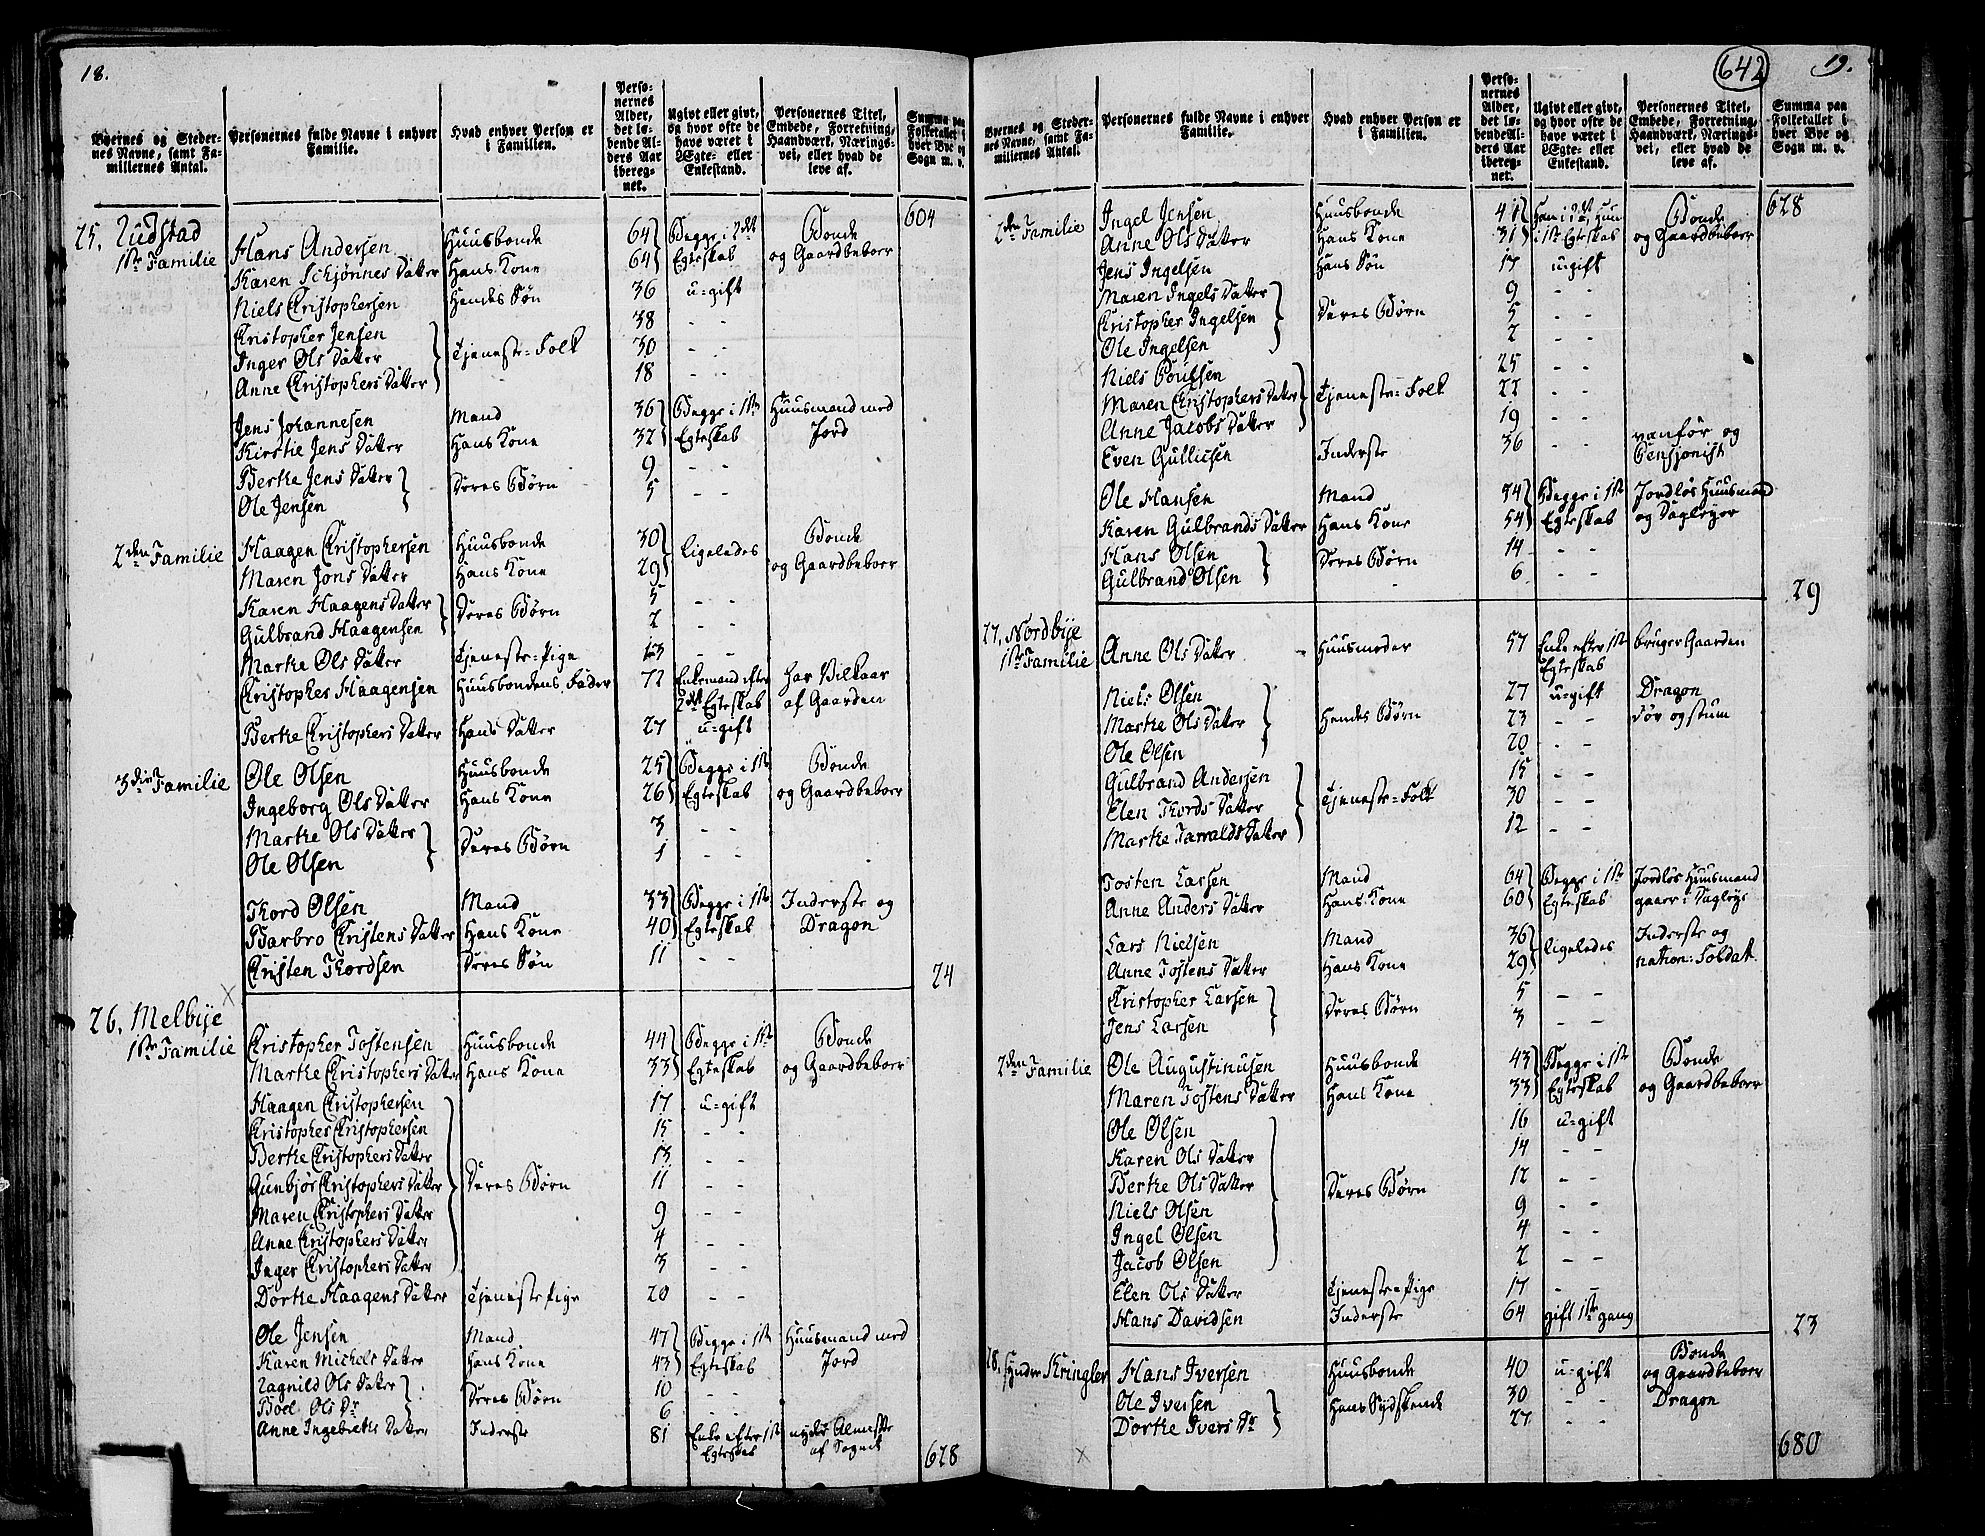 18.
Byernes og Steder-
nes Navne, samt Fa-
miliernes Antal.
Personernes fulde Navne i enhver
Familie.
Hvad enhver Person er
i Familien.
Perso-
nernes
Alder,
det lø-
bende Al-
ders Aar
ibereg-
net.
Ugivt eller givt,
og hvor ofte de
have været i
Ægte- eller
Enkestand.
Personernes Titel,
Embede, Forretning,
Haandværk, Nærings-
vei, eller hvad de
leve af.
Summa paa
Folketallet i
hver Bye og
Sogn m. v.
604
25. Rudstad
1ste Familie Hans Andersen Huusbonde 64 Begge i 2det Bonde
Karen Schjønnes Datter Hans Kone 64 Egteskab og Gaardbeboer
Niels Christophersen Hendes Søn 36 u-gift
Christopher Jensen 38 - -
Inger Ols Datter Tjeneste-Folk 30 - -
Anne Christophers Datter 18 - -
Jens Johannesen Mand 36 Begge i 1ste Huusmand med
Kirstie Jens Datter Hans Kone 32 Egteskab Jord
Berthe Jens Datter Deres Børn 9 - -
Ole Jensen 5 - -
2den Familie Haagen Christophersen Huusbonde 30 Ligeledes Bonde
Maren Jons Datter Hans Kone 29 og Gaardbeboer
Karen Haagens Datter Deres Børn 5 - -
Gulbrand Haagensen 2 - -
Marthe Ols Datter Tjeneste-Pige 13 - -
Christopher Haagensen Huusbondens Fader 72 Enkemand efter har Vilkaar
2det Egteskab af Gaarden
Berthe Christophers Datter Hans Datter 27 u-gift
3die Familie Ole Olsen Huusbonde 25 Begge i 1ste Bonde
Ingeborg Ols Datter Hans Kone 26 Egteskab og Gaardbeboer
Marthe Ols Datter Deres Børn 3 - -
Ole Olsen 1 - -
Thord Olsen Mand 33 Begge i 1ste Inderste og
Barbro Christens Datter Hans Kone 40 Egteskab Dragon
Christen Thordsen Deres Søn 11 - -
24
26. Melbye
1ste Familie Christopher Tostensen Huusbonde 44 Begge i 1ste Bonde
Marthe Christophers Datter Hans Kone 33 Egteskab og Gaardbeboer
Haagen Christophersen 17 u-gift
Christopher Christophersen 15 - -
Berthe Christophers Datter 13 - -
Gunbjør Christophers Datter Deres Børn 11 - -
Maren Christophers Datter 9 - -
Anne Christophers Datter 4 - -
Inger Christophers Datter 3 - -
Dorthe Haagens Datter Tjeneste Pige 20 - -
Ole Jensen Mand 47 Begge i 1ste Huusmand med
Karen Michels Datter Hans Kone 43 Egteskab Jord
Ragnild Ols Datter Deres Børn 10 - -
Boel Ols Dr 6 - -
Anne Ingebreths Datter Inderste 81 Enke efter 1ste nyder Almisse
Egteskab af Sognet
628
642
19.
Byernes og Steder-
nes Navne, samt Fa-
miliernes Antal.
Personernes fulde Navne i enhver
Familie.
Hvad enhver Person er
i Familien.
Perso-
nernes
Alder,
det lø-
bende Al-
ders Aar
ibereg-
net.
Ugivt eller givt,
og hvor ofte de
have været i
Ægte- eller
Enkestand.
Personernes Titel,
Embede, Forretning,
Haandværk, Nærings-
vei, eller hvad de
leve af.
Summa paa
Folketallet i
hver Bye og
Sogn m. v.
2den Familie Ingel Jensen Huusbonde 41 Han i 2det Hun Bonde 628
Anne Ols Datter Hans Kone 31 i 1ste Egteskab og Gaardbeboer
Jens Ingelsen Hans Søn 17 u-gift
Maren Ingels Datter 9 - -
Christopher Ingelsen Deres Børn 5 - -
Ole Ingelsen 2 - -
Niels Poulsen 25 - -
Maren Christophers Datter Tjeneste-Folk 22 - -
Anne Jacobs Datter 19 - -
Even Gullicsen Inderste 36 - - vanfør og
Pensjonist
Ole Hansen Mand 54 Begge i 1ste Jordløs Huusmand
Karen Gulbrands Datter Hans Kone 54 Egteskab og Dagleyer
Hans Olsen Deres Børn 14 - -
Gulbrand Olsen 6 - -
29
27. Nordbye
1ste Familie Anne Ols Datter Huusmoder 57 Enke efter 1ste bruger Gaarden
Egteskab
Niels Olsen 27 u-gift Dragon
Marthe Ols Datter Hendes Børn 23 - - døv og stum
Ole Olsen 20 - -
Gulbrand Andersen 15 - -
Elen Thords Datter Tjeneste-Folk 30 - -
Marthe Tarralds Datter 12 - -
Tosten Larsen Mand 64 Begge i 1ste Jordløs Huusmand
Anne Anders Datter Hans Kone 60 Egteskab gaaer i Dagleye
Lars Nielsen Mand 36 Ligeledes Inderste og
Anne Tostens Datter Hans Kone 29 nation: Soldat
Christopher Larsen Deres Børn 5 - -
Jens Larsen 3 - -
2den Familie Ole Augustinusen Huusbonde 43 Begge i 1ste Bonde
Maren Tostens Datter Hans Kone 33 Egteskab og Gaardbeboer
Ole Olsen 16 u-gift
Karen Ols Datter 14 - -
Berthe Ols Datter Deres Børn 12 - -
Niels Olsen 9 - -
Ingel Olsen 4 - -
Jacob Olsen 2 - -
Elen Ols Datter Tjeneste Pige 17 - -
Hans Davidsen Inderste 64 gift 1ste gang
23
28. Synder Kringler Hans Iversen Huusbonde 40 u-gift Bonde
og Gaardbeboer
Ole Iversen Hans Sydskende 30 - - Dragon
Dorthe Ivers Dr 27 - -
680